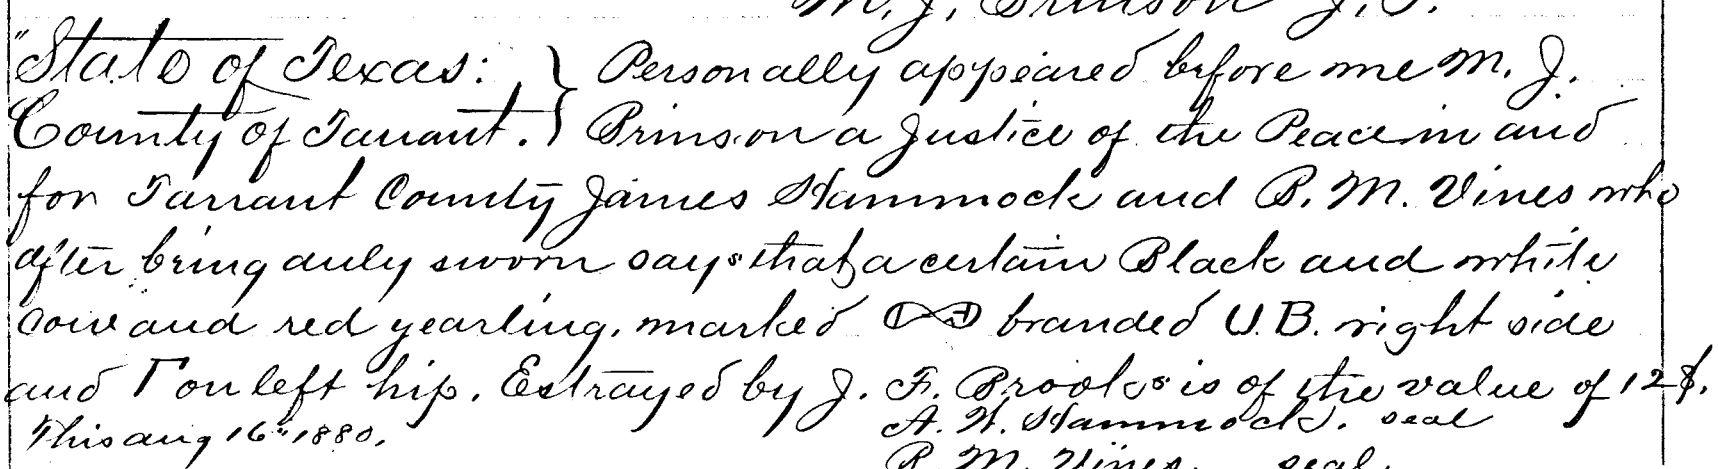 M. J. Brinson J. P.
"State of Texas: } Personally appeared before me M. J.
County of Tarrant. } Brinson a Justice of the Peace in and
for Tarrant County James Hammock and B. M. Vines who
after being duly sworn says that a certain Black and white
cow and red yearling, marked branded U.B. right side
and Γ on left hip. Estrayed by J. F. Brooks is of the value of 12$.
This aug 16th 1880. A. H. Hammock. seal
B. M. Vines. seal.